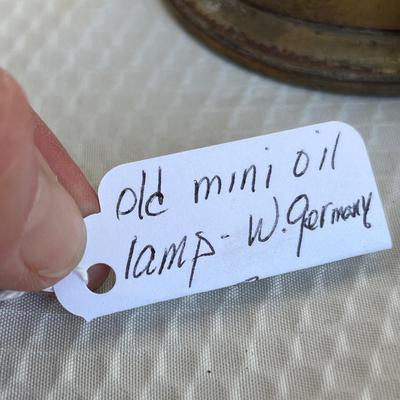 old mini oil
lamp - W. Germany